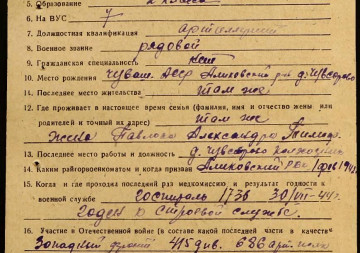 5. Образование 2 класса
6. На ВУС 7
7. Должностная квалификация
8. Военное звание рядовой
9. Гражданская специальность нет
10. Место рождения Чуваш АССР Аликовский р-н д.
11. Последнее место жительства Там же
12. Где проживает в настоящее время семья (фамилия, имя и отчество жены или
родителей и точный их адрес) Там же
Жена Павлова Александра
13. Последнее место работы и должность д.
14. Каким райгорвоенкоматом и когда призван Аликовский РВК
15. Когда и где проходил последний раз медкомиссию и результат годности к
военной службе Госпиталь 1736 30/VII-44г.
Годен к строевой службе.
16. Участие в Отечественной войне (в составе какой последней части в качестве
Западный фронт 415 див. 686 арт. полк